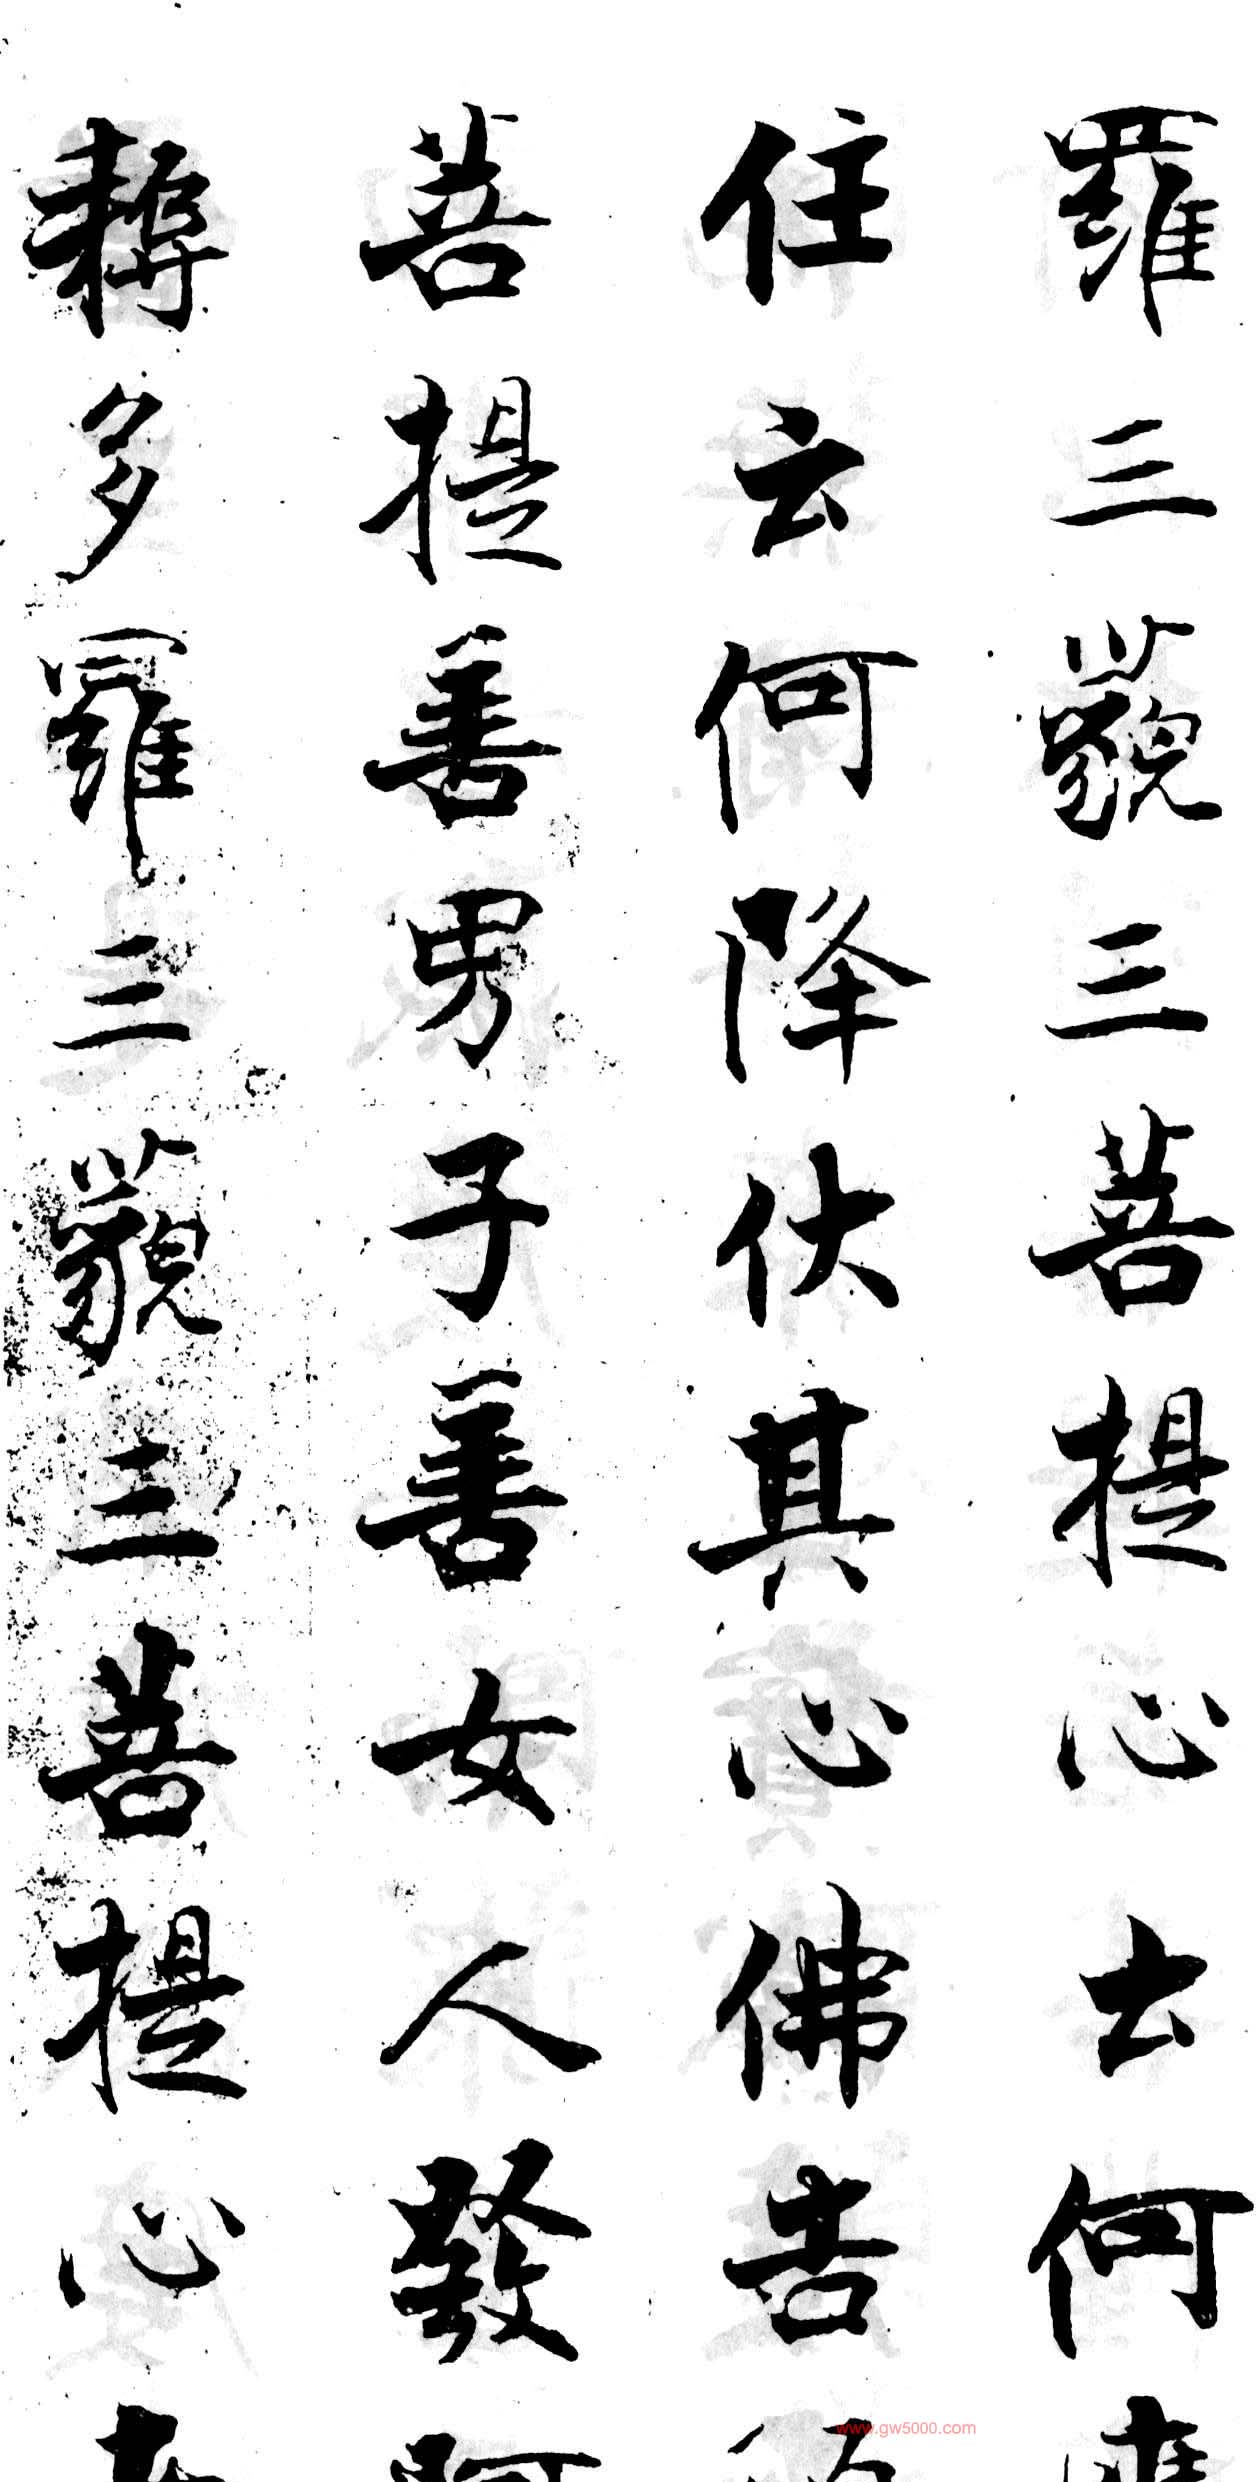 羅三藐三菩提心云何應
住云何降伏其心佛告
菩提善男子善女人發阿
耨多羅三藐三菩提心
www.gw5000.com